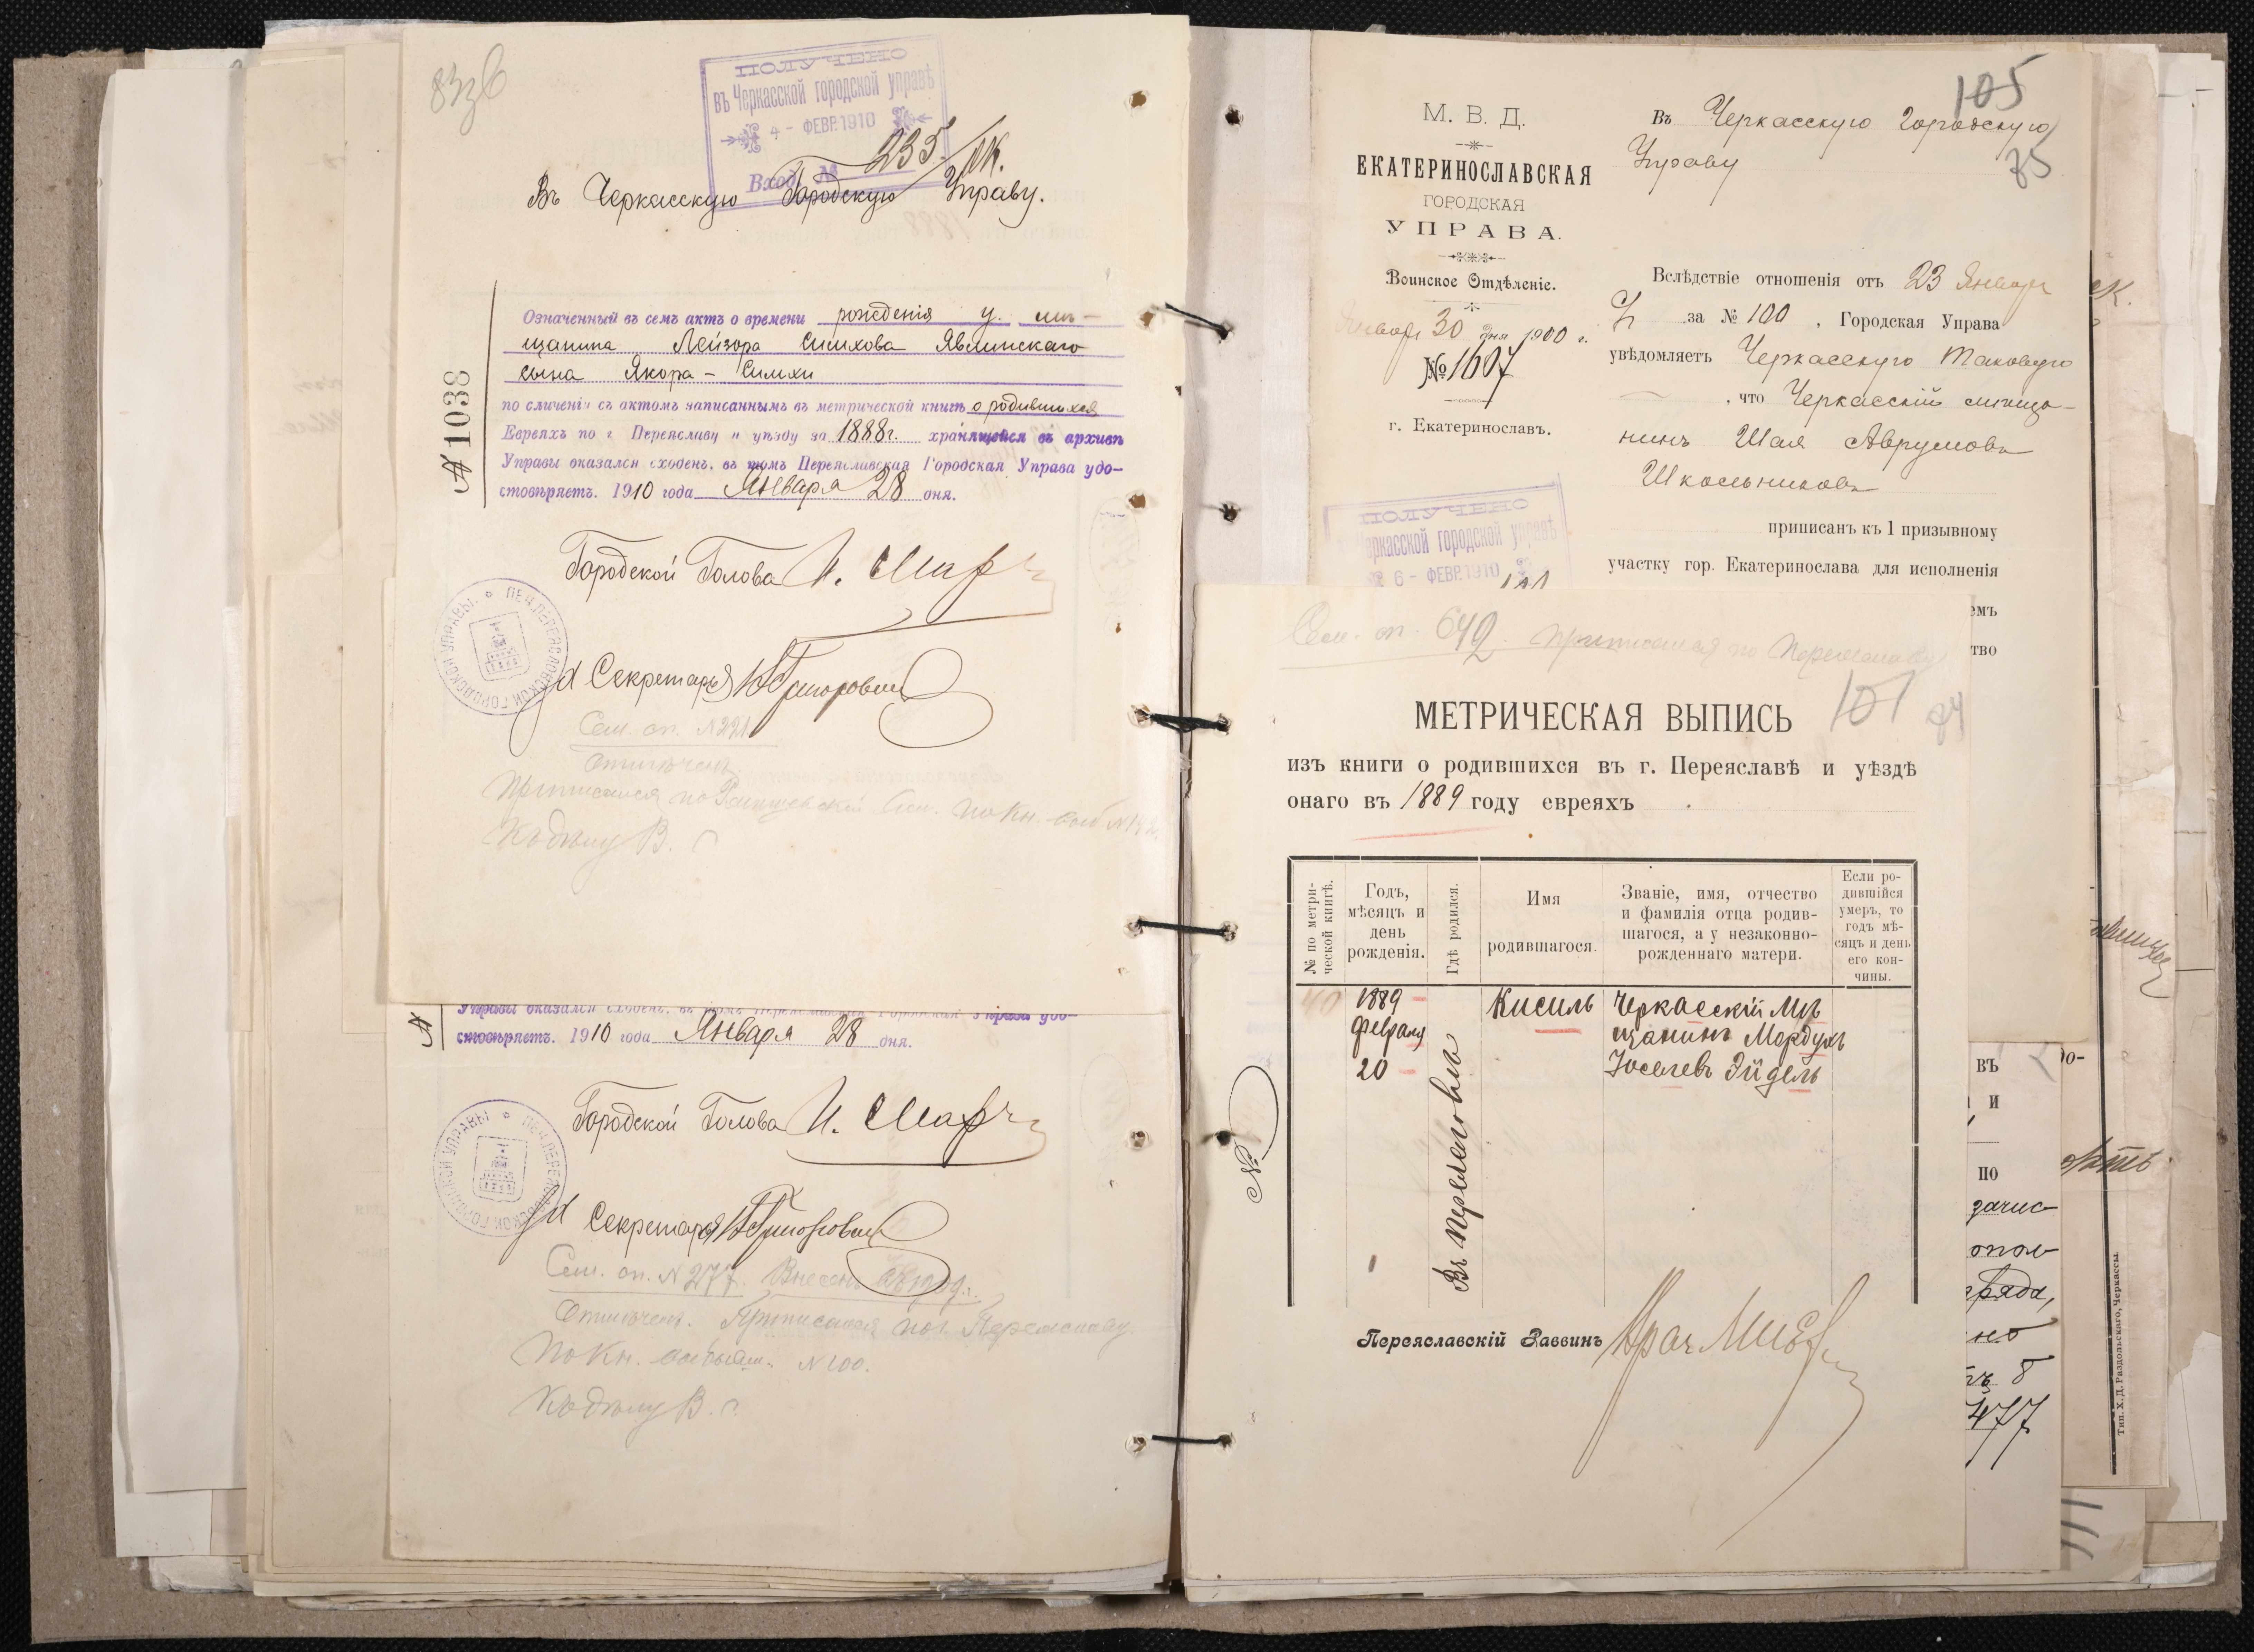 ПОЛУЧЕНО
въ Черкасской городской управѣ
4 - ФЕВР. 1910
Вход. №
235
Въ Черкасскую Городскую Управу.
№ 1038
Означенный въ семъ актъ о времени рожденія у мѣ-
щанина Лейзора Симхова Явлинскаго
сына Якора - Симхи
по сличеніи съ актомъ записаннымъ въ метрической книгѣ о родившихся
Евреяхъ по г. Переяславу и уѣзду за 1888 г. хранящейся въ архивѣ
Управы оказался сходенъ, въ томъ Переяславская Городская Управа удо-
стовѣряетъ. 1910 года Января 28 дня.
Городской Голова
Секретаря
ПЕЧ. ПЕРЕЯСЛОВСКОЙ ГОРОДСКОЙ УПРАВЫ.
Сем. сп. №
Отмѣченъ
Приписался по
Управы оказался сходенъ, въ томъ Переяславская Городская Управа удо-
№
стовѣряетъ. 1910 года Января 28 дня.
Городской Голова
Секретаря
Сем. сп. № 277. Внесенъ
Отмѣченъ. Приписался по г. Переяславу
по кн. № 100.
105
75
М. В. Д.
ЕКАТЕРИНОСЛАВСКАЯ
ГОРОДСКАЯ
УПРАВА.
Воинское Отдѣленіе.
Января 30 дня 1900 г.
№ 1607
г. Екатеринославъ.
Въ Черкасскую Городскую
Управу
Вслѣдствіе отношенія отъ 23 Января
за № 100, Городская Управа
увѣдомляетъ Черкасскую таковую
, что Черкасскій мѣща-
нинъ Шая Аврумовъ
Школьниковъ
приписанъ къ 1 призывному
участку гор. Екатеринослава для исполненія
ПОЛУЧЕНО
Черкасской городской управѣ
6 - ФЕВР. 1910
емъ
тво
Сем. сп. 642. Приписался по Переяславу
101
74
МЕТРИЧЕСКАЯ ВЫПИСЬ
изъ книги о родившихся въ г. Переяславѣ и уѣздѣ
онаго въ 1889 году евреяхъ
№ по метри-
ческой книгѣ.
Годъ,
мѣсяцъ и
день
рожденія.
Гдѣ родился.
Имя
родившагося.
Званіе, имя, отчество
и фамилія отца родив-
шагося, а у незаконно-
рожденнаго матери.
Если ро-
дившійся
умеръ, то
годъ мѣ-
сяцъ и день
его кон-
чины.
40
1889
февраля
20
Въ Переяславлѣ
Кисиль
Черкасскій мѣ
щанинъ Мордухъ
Іоселевъ Эйдель
№
Переяславскій Раввинъ
въ
и
по
зачис
опол
ряда,
но
8
477
до-
111
Тип. Х. Д. Раздольскаго, Черкассы